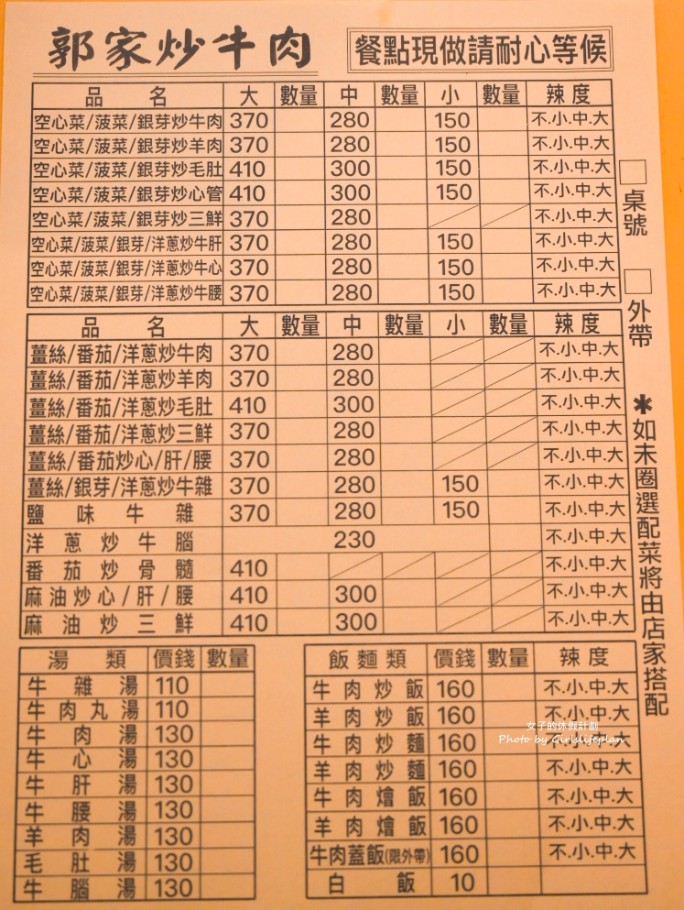 郭家炒牛肉 餐點現做請耐心等候
品名 大 數量 中 數量 小 數量 辣度
空心菜/菠菜/銀芽炒牛肉 370 280 150 不.小.中.大
空心菜/菠菜/銀芽炒羊肉 370 280 150 不.小.中.大
空心菜/菠菜/銀芽炒毛肚 410 300 150 不.小.中.大
空心菜/菠菜/銀芽炒心管 410 300 150 不.小.中.大
空心菜/菠菜/銀芽炒三鮮 370 280 不.小.中.大
空心菜/菠菜/銀芽/洋蔥炒牛肝 370 280 150 不.小.中.大
空心菜/菠菜/銀芽/洋蔥炒牛心 370 280 150 不.小.中.大
空心菜/菠菜/銀芽/洋蔥炒牛腰 370 280 150 不.小.中.大
品名 大 數量 中 數量 小 數量 辣度
薑絲/番茄/洋蔥炒牛肉 370 280 不.小.中.大
薑絲/番茄/洋蔥炒羊肉 370 280 不.小.中.大
薑絲/番茄/洋蔥炒毛肚 410 300 不.小.中.大
薑絲/番茄/洋蔥炒三鮮 370 280 不.小.中.大
薑絲/番茄炒心/肝/腰 370 280 不.小.中.大
薑絲/銀芽/洋蔥炒牛雜 370 280 150 不.小.中.大
鹽味牛雜 370 280 150 不.小.中.大
洋蔥炒牛腦 230 不.小.中.大
番茄炒骨髓 410 不.小.中.大
麻油炒心/肝/腰 410 300 不.小.中.大
麻油炒三鮮 410 300 不.小.中.大
湯類 價錢 數量
牛雜湯 110
牛肉丸湯 110
牛肉湯 130
牛心湯 130
牛肝湯 130
牛腰湯 130
羊肉湯 130
毛肚湯 130
牛腦湯 130
飯麵類 價錢 數量 辣度
牛肉炒飯 160 不.小.中.大
羊肉炒飯 160 不.小.中.大
牛肉炒麵 160 不.小.中.大
羊肉炒麵 160 不.小.中.大
牛肉燴飯 160 不.小.中.大
羊肉燴飯 160 不.小.中.大
牛肉蓋飯(限外帶) 160 不.小.中.大
白飯 10
桌號
外帶
✱如未圈選配菜將由店家搭配
女子的休假計劃
Photo by Girlslifeplan